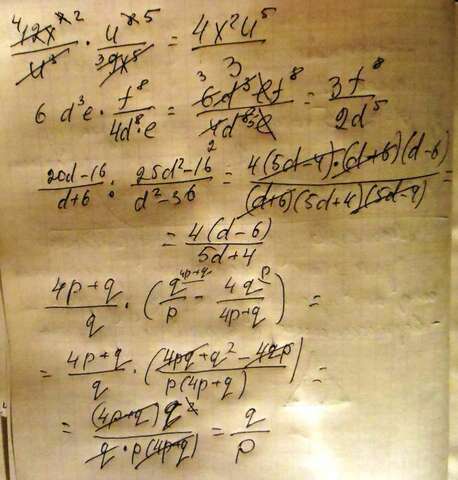 12x⁷/u³ · u⁸/9x⁵ = 4x²u⁵/3
6 d³e · f⁸/4d⁸·e = 6d³ef⁸/4d⁸e = 3f⁸/2d⁵
20d-16/d+6 : 25d²-16/d²-36 = 4(5d-4)·(d+6)(d-6)/(d+6)(5d+4)(5d-4) =
= 4(d-6)/5d+4
4p+q/q · (q/p - 4q/4p+q) =
= 4p+q/q · (4pq+q²-4qp/p(4p+q)) =
= (4p+q)q²/q·p(4p+q) = q/p